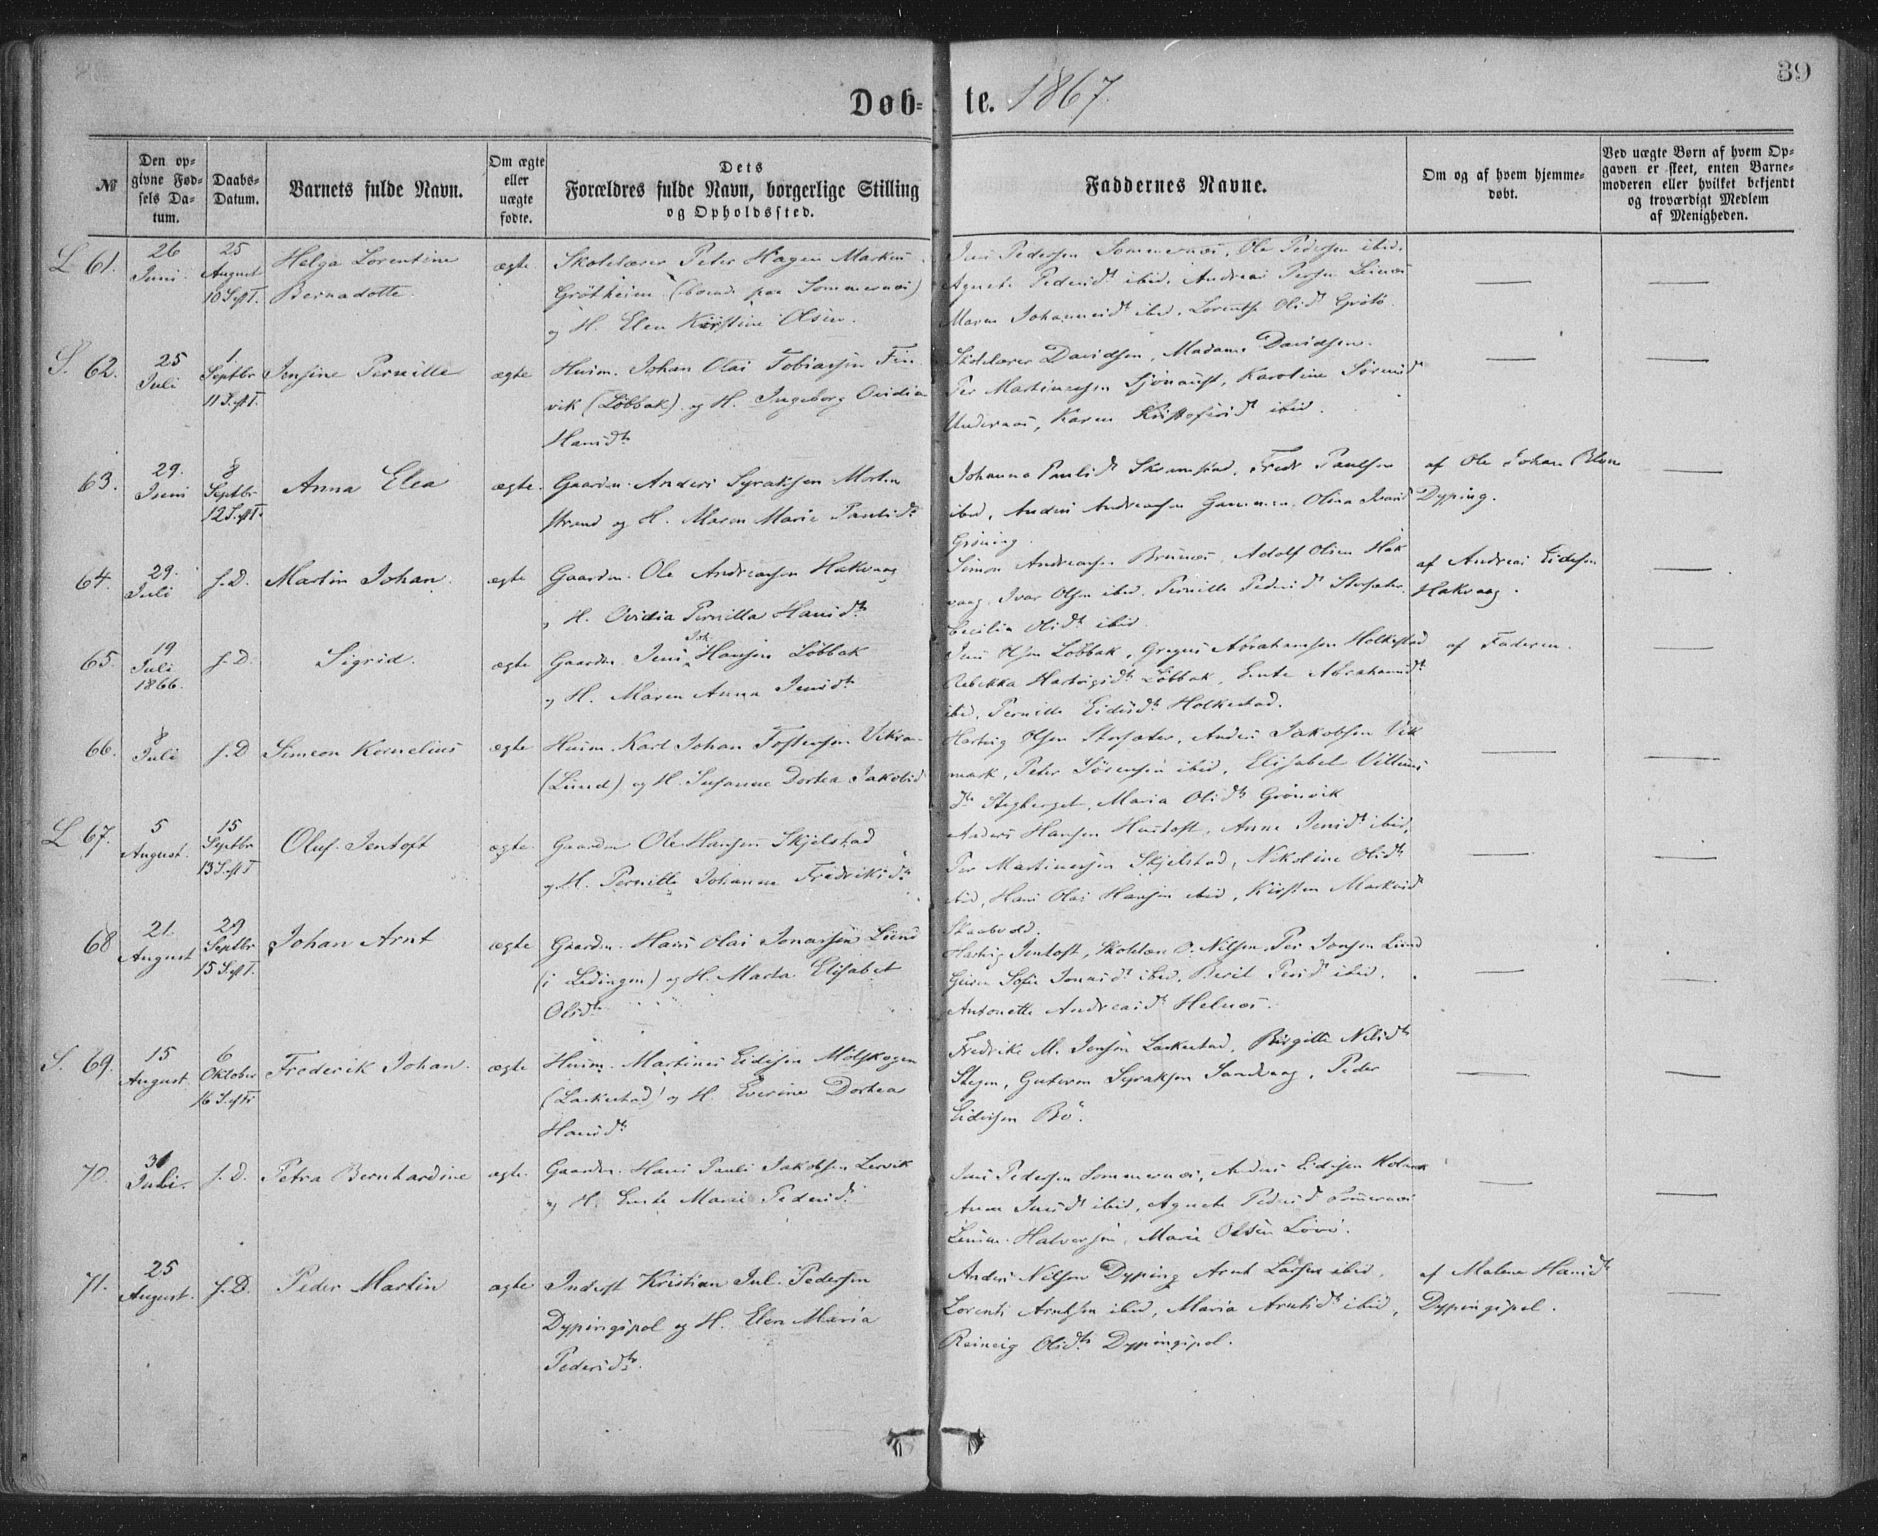 39
Døb- te. 1867.
№
Den op-
givne Fød-
sels Da-
tum.
Daabs-
Datum.
Barnets fulde Navn.
Om ægte
eller
uægte
fødte.
Dets
Forældres fulde Navn, borgerlige Stilling
og Opholdssted.
Faddernes Navne.
Om og af hvem hjemme-
døbt.
Ved uægte Børn af hvem Op-
gaven er skeet, enten Barne-
moderen eller hvilket bekjendt
og troværdigt Medlem
af Menigheden.
L 61.
26
Juni
25
August
10 S. eft T.
Helga Lorentine
Bernadotte.
ægte
Skolelærer Peter Hagen Markus
Grøtheim (boende paa Sommernæs)
og H. Elen Kirstine Olsen.
Jens Pedersen Sommernæs, Ole Pedersen ibid.
Agnete Pedersdtr ibid, Andreas Persen Leines
Maren Johannesdtr ibid, Lorentse Olsdtr Grøtø
S. 62.
25
Juli
1
Septbr
11 S. eft T.
Jensine Pernille
ægte
Husm. Johan Olai Tobiassen Fin-
vik (Løbbak) og H. Ingeborg Ovidia
Hansdtr
Skolelærer Davidsen, Madame Davidsen.
Per Martinussen Sjønaust, Karoline Sørensd
Undernæs, Karen Kristofersdtr ibid.
63.
29.
Juni
8
Septbr
12 S. eft T.
Anna Elea
ægte.
Gaardm. Anders Syraksen Morten
strand og H. Maren Marie Paulsdtr
Johanna Paulsdtr Skramsund, Fredr Paulsen
ibid, Anders Andreassen, Olina
Grøning.
af Ole Johan
Dyping.
64.
29.
Juli
s. D.
Martin Johan.
ægte
Gaardm. Ole Andreassen Hakvaag
og H. Ovidia Pernilla Hansdtr
Simon Andreassen Brunæs, Adolf Olsen Hak
vaag, Ivar Olsen ibid, Pernille Pedersdtr Storsæter
Cecilia Olsdtr ibid
af Andreas Eidesen
Hakvaag.
65.
19
Juli
1866.
s. D.
Sigrid.
ægte
Gaardm. Jens Joh. Hansen Løbbak
og H. Maren Anna Jensdtr
Jens Olsen Løbbak, Gregus Abrahamsen Holkestad
Rebekka Hartvigsdtr Løbbak, Ente Abrahamsdtr
ibid, Pernille Eidesdtr Holkestad.
af Faderen.
66.
8
Juli
s. D
Simeon Kornelius
ægte
Husm. Karl Johan Tostensen Vikran
(Lund) og H. Susanne Dortea Jakobsd
Hartvig Olsen Storsæter, Anders Jakobsen Vik
mark, Peter Sørensen ibid, Elisabet Villums
dtr Stegberget, Maria Olsdtr Grønvik
L 67.
5
August.
15
Septbr
13 S. eft T
Oluf Jentoft
ægte.
Gaardm Ole Hansen Skjelstad
og H. Pernille Johanna Fredriksdtr
Anders Hansen Hustoft, Anne Jensdtr ibid,
Per Martinussen Skjelstad, Nikoline Olsdtr
ibid, Hans Olai Hansen ibid, Kirsten Markusd
Skaabvold.
68
21.
August
29
Septbr
15 S. eft T.
Johan Arnt
ægte
Gaardm. Hans Olai Jonassen Lund
(i Lødingen) og H. Marta Elisabet
Olsdtr
Hartvig Jentoft, Skolelær O. Nilsen, Per Jonsen Lund
Guren Sofie Jonasdtr ibid, Berit Persdtr ibid.
Antonette Andreasdtr Helnæs.
S. 69.
15
August
6
Oktober
16 S. eft Tr
Frederik Johan.
ægte
Husm. Martinus Eidesen Mølskogen
(Laskestad) og H. Everine Dortea
Hansdtr
Fredrike M. Jensen Laskestad, Birgitte Nilsdtr
Stegen, Guttorm Syraksen Sandvaag, Peder
Eidesen Bø.
70.
31
Juli.
s. D.
Petra Bernhardine
ægte.
Gaardm. Hans Pauli Jakobsen Lervik
og H. Ente Marie Pedersdtr
Jens Pedersen Sommernæs, Anders Eidesen
Anne Jensdtr ibid, Agnete Pedersd Sommernæs
Halvorsen, Marie Olsen Løvø.
71.
25
August.
s. D.
Peder Martin
ægte
Inderst Kristian Jul. Pedersen
Dypingspol og H. Elen Maria
Pedersdtr.
Anders Nilsen Dyping, Arnt Larsen ibid.
Lorents Arntsen ibid, Maria Arntsdtr ibid,
Olsdtr Dypingspol.
af Malene Hansdtr
Dypingspol.